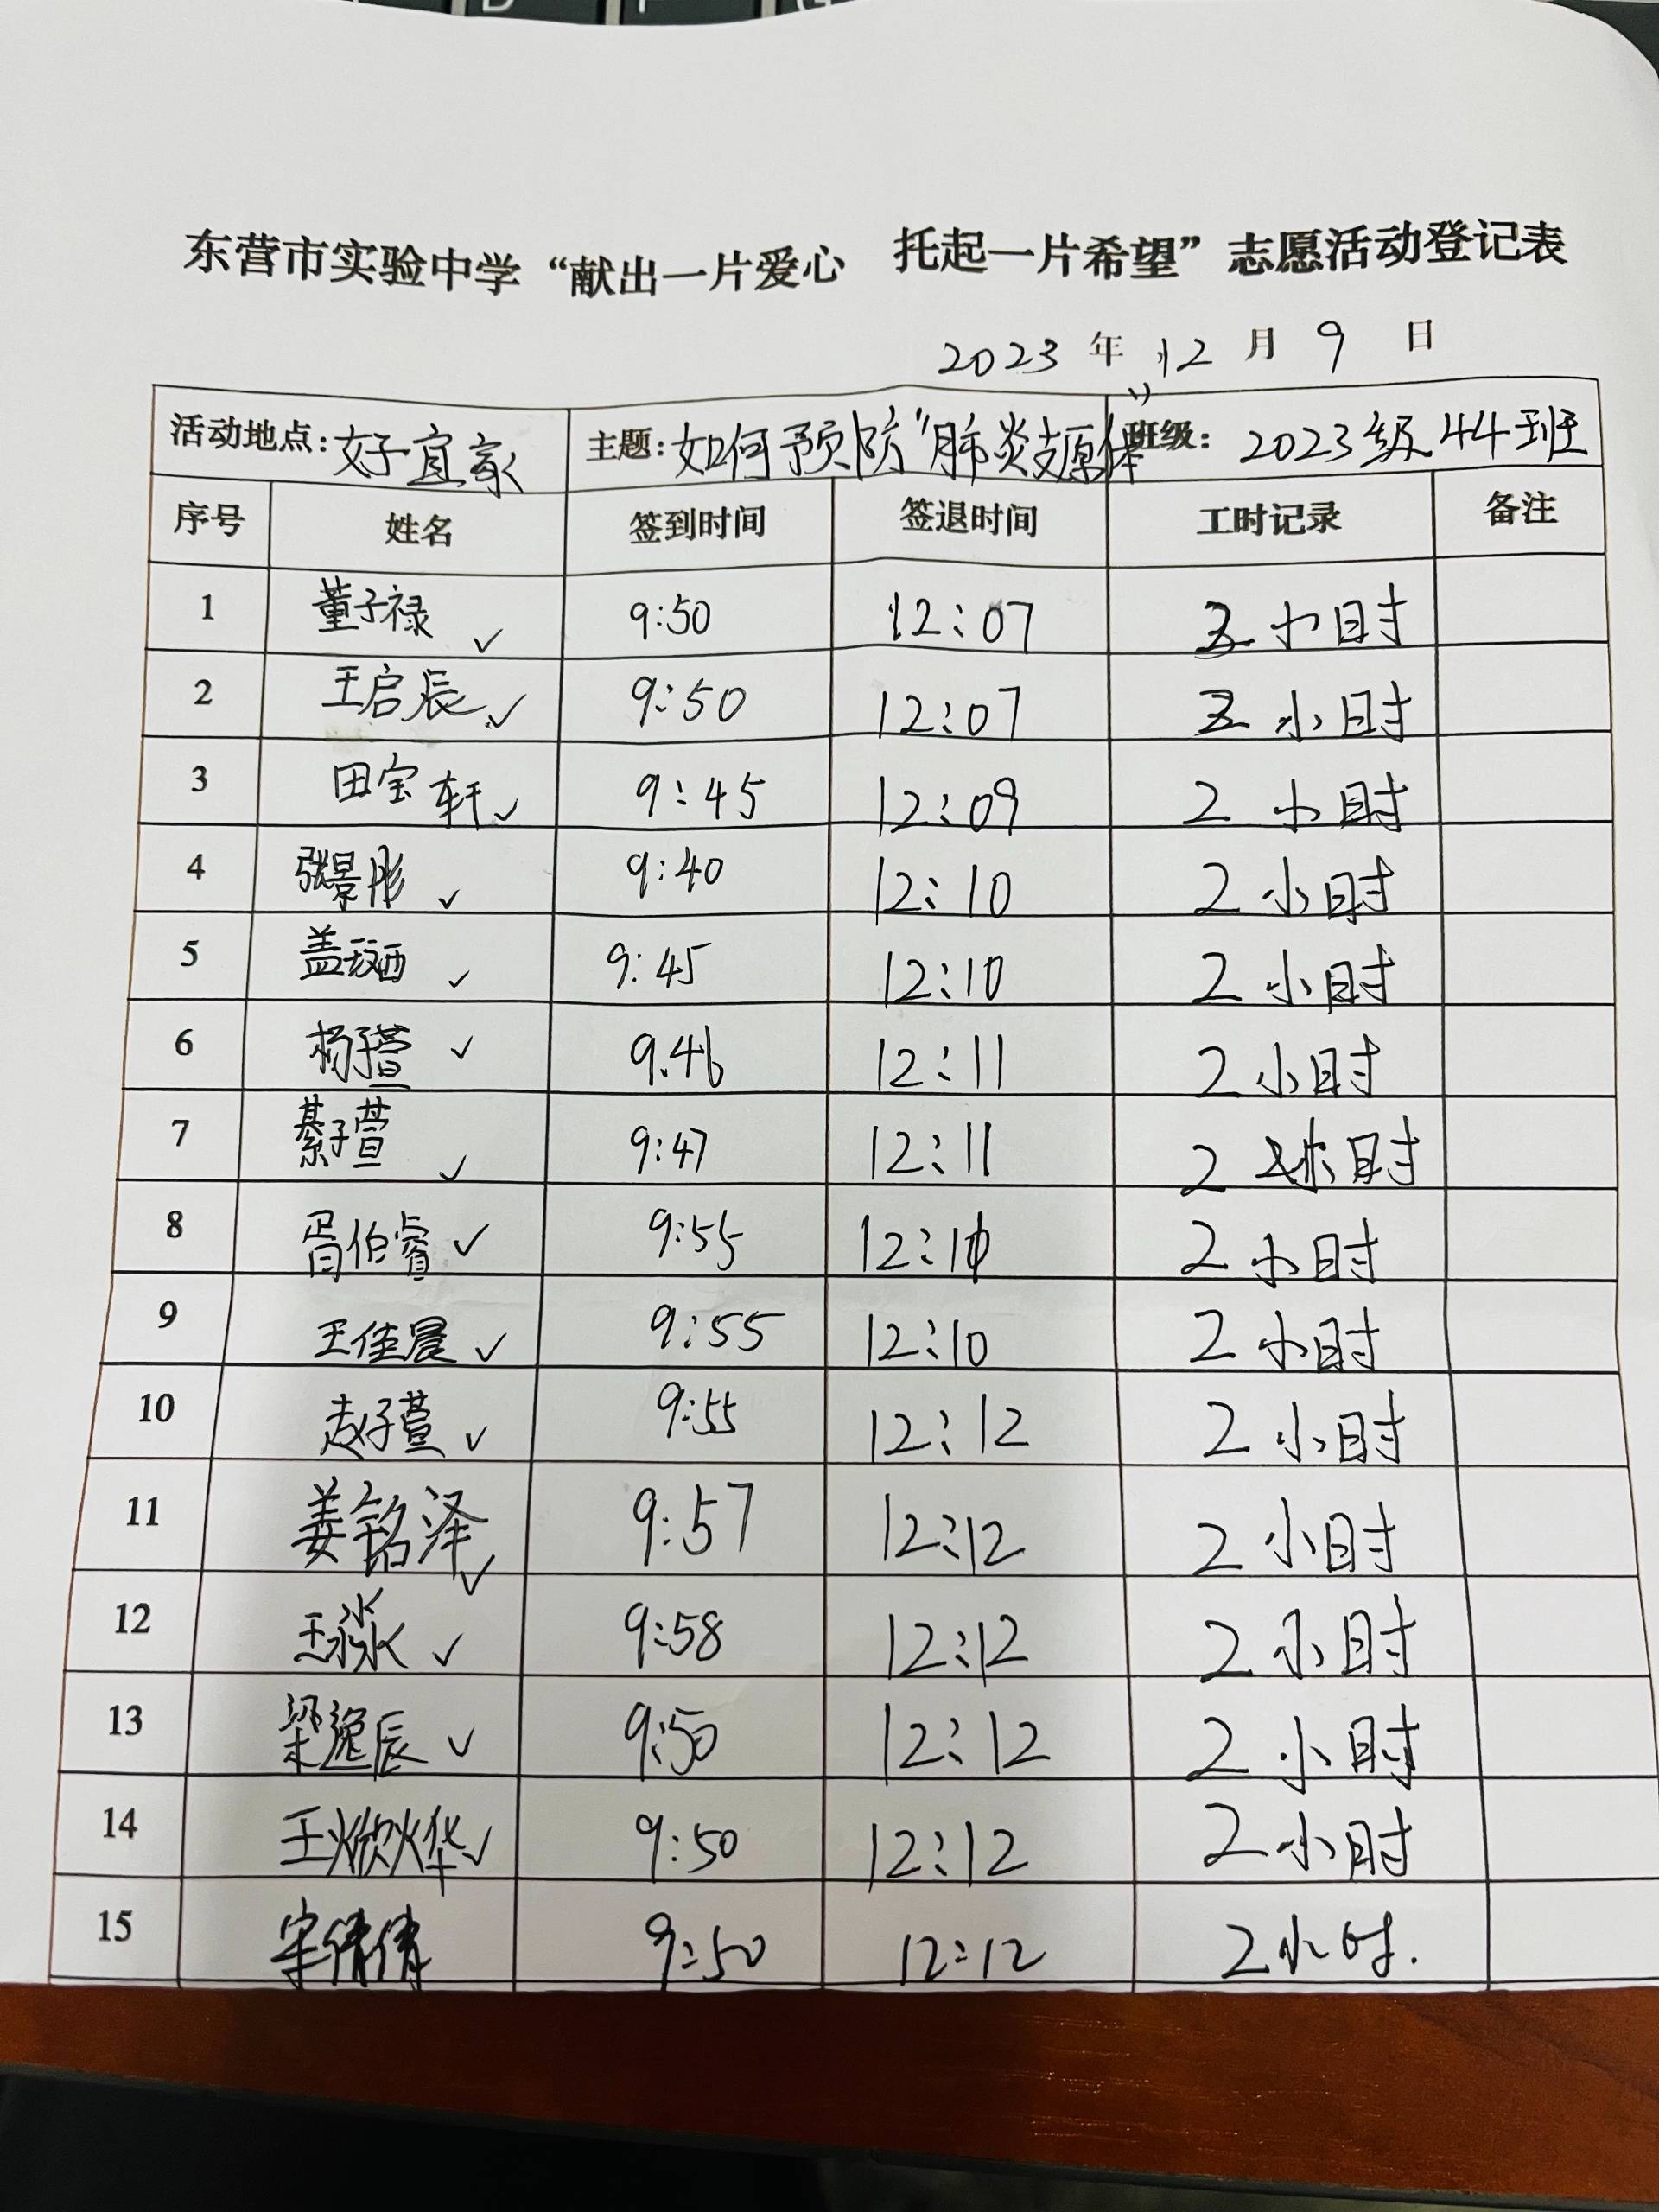 东营市实验中学“献出一片爱心 托起一片希望”志愿活动登记表
2023 年 12 月 9 日
活动地点：好宜家 主题：如何预防“肺炎支原体” 班级：2023级44班
序号 姓名 签到时间 签退时间 工时记录 备注
1 董子禄 ✓ 9:50 12:07 2 小时
2 王启辰 ✓ 9:50 12:07 2 小时
3 田宝轩 ✓ 9:45 12:09 2 小时
4 张景彤 ✓ 9:40 12:10 2 小时
5 ✓ 9:45 12:10 2 小时
6 杨子萱 ✓ 9.46 12:11 2 小时
7 綦子萱 ✓ 9:47 12:11 2 小时
8 胥伯睿 ✓ 9:55 12:10 2 小时
9 王佳晨 ✓ 9:55 12:10 2 小时
10 赵子萱 ✓ 9:55 12:12 2 小时
11 姜铭泽 ✓ 9:57 12:12 2 小时
12 王淼 ✓ 9:58 12:12 2 小时
13 梁逸辰 ✓ 9:50 12:12 2 小时
14 王焮烨 ✓ 9:50 12:12 2 小时
15 宋倩倩 9:50 12:12 2小时.